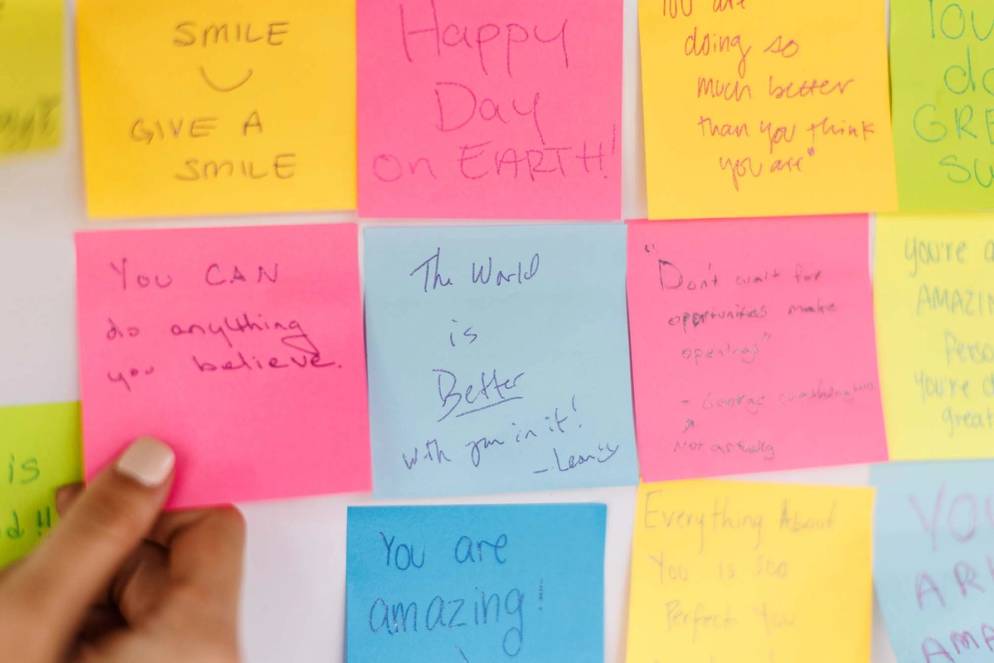 SMILE
GIVE A
SMILE
Happy
Day
on EARTH!
You are
doing so
much better
than you think
you are"
GRE
YOU CAN
do anything
you believe.
The World
is
Better
with you in it!
"Don't wait for
opportunities make
openings"
- George Washington
Not actually
you're a
AMAZIN
Perso
You're d
great
is
d !!
You are
amazing!
Everything About
You is Soo
Perfect You
YOU
AR
AMA